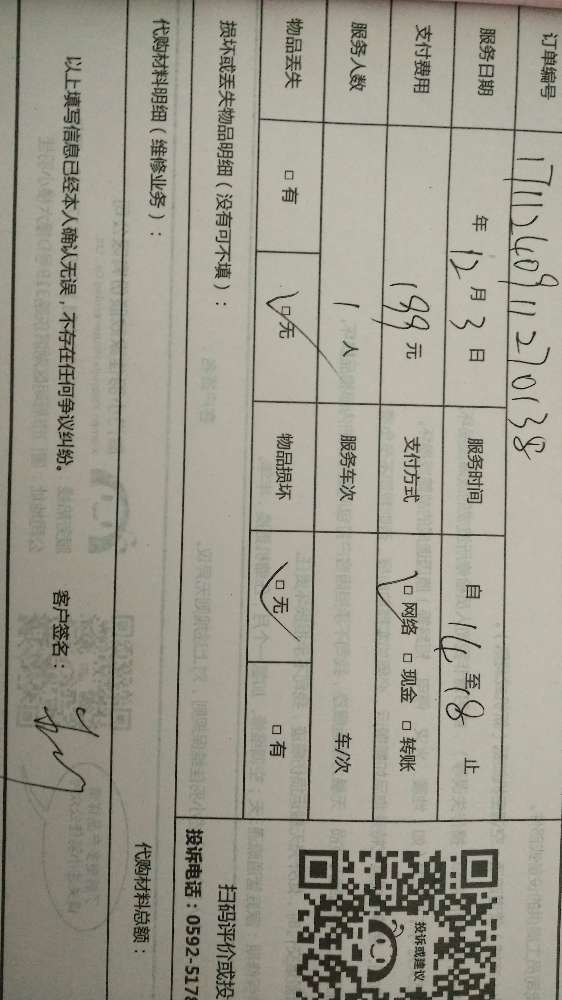 订单编号 171124091127013​8
服务日期 年 12 月 3 日 服务时间 自 14 至 18 止
支付费用 199 元 支付方式 □ 网络 □ 现金 □ 转账
服务人数 1 人 服务车次 车/次
物品丢失 □ 有 □ 无 物品损坏 □ 无 □ 有
损坏或丢失物品明细(没有可不填):
代购材料明细(维修业务): 代购材料总额:
以上填写信息已经本人确认无误,不存在任何争议纠纷。 客户签名:
投诉或建议
扫码评价或投
投诉电话:0592-5178